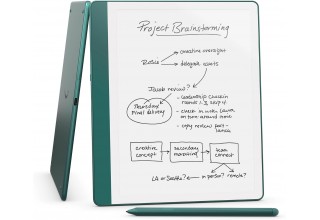 Project Brainstorming
creative oversight
Roles
delegate assets
Jacob review?
Thursday
Final delivery
leadership check in
check in with
on turn around time
copy review post-
creative
concept
secondary
marketing
team
connect
LA or Seattle?
in person?
remote?